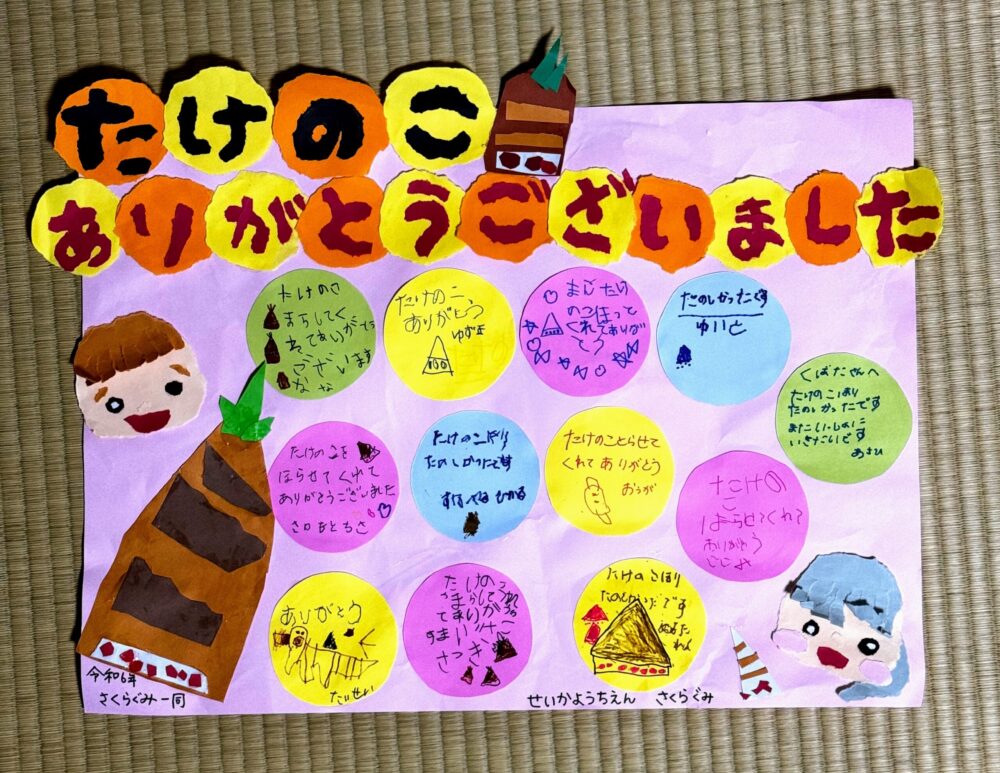 たけのこ
ありがとうございました
たけのこ
ございます
なな
たけのこ
ありがとう
ゆずき
のこほって
くれてありが
とう
たのしかったです
ゆいと
くぼたさんへ
たけのこほり
たのしかったです
またこいしのに
いきたいです
あさひ
たけのこを
ほらせてくれて
ありがとうございました
たけのこほり
たのしかったです
ひかる
たけのことらせて
くれてありがとう
おうが
たけの
こ
ほらせてくれて
ありがとう
ここみ
ありがとう
たいせい
さつき
たけのこほり
たのしかったです
れん
令和6年
さくらぐみ一同
せいかようちえん さくらぐみ